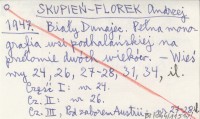 SKUPIEŃ-FLOREK Andrzej
1947. Biały Dunajec. Pełna mono-
grafia wsi podhalańskiej na
przełomie dwóch wieków. – Wieś
nry 24, 26, 27-28, 31, 34, il.
Część I: nr 24.
Cz. II: nr 26.
Cz. III: Pod zaborem Austrii: nr 27-28